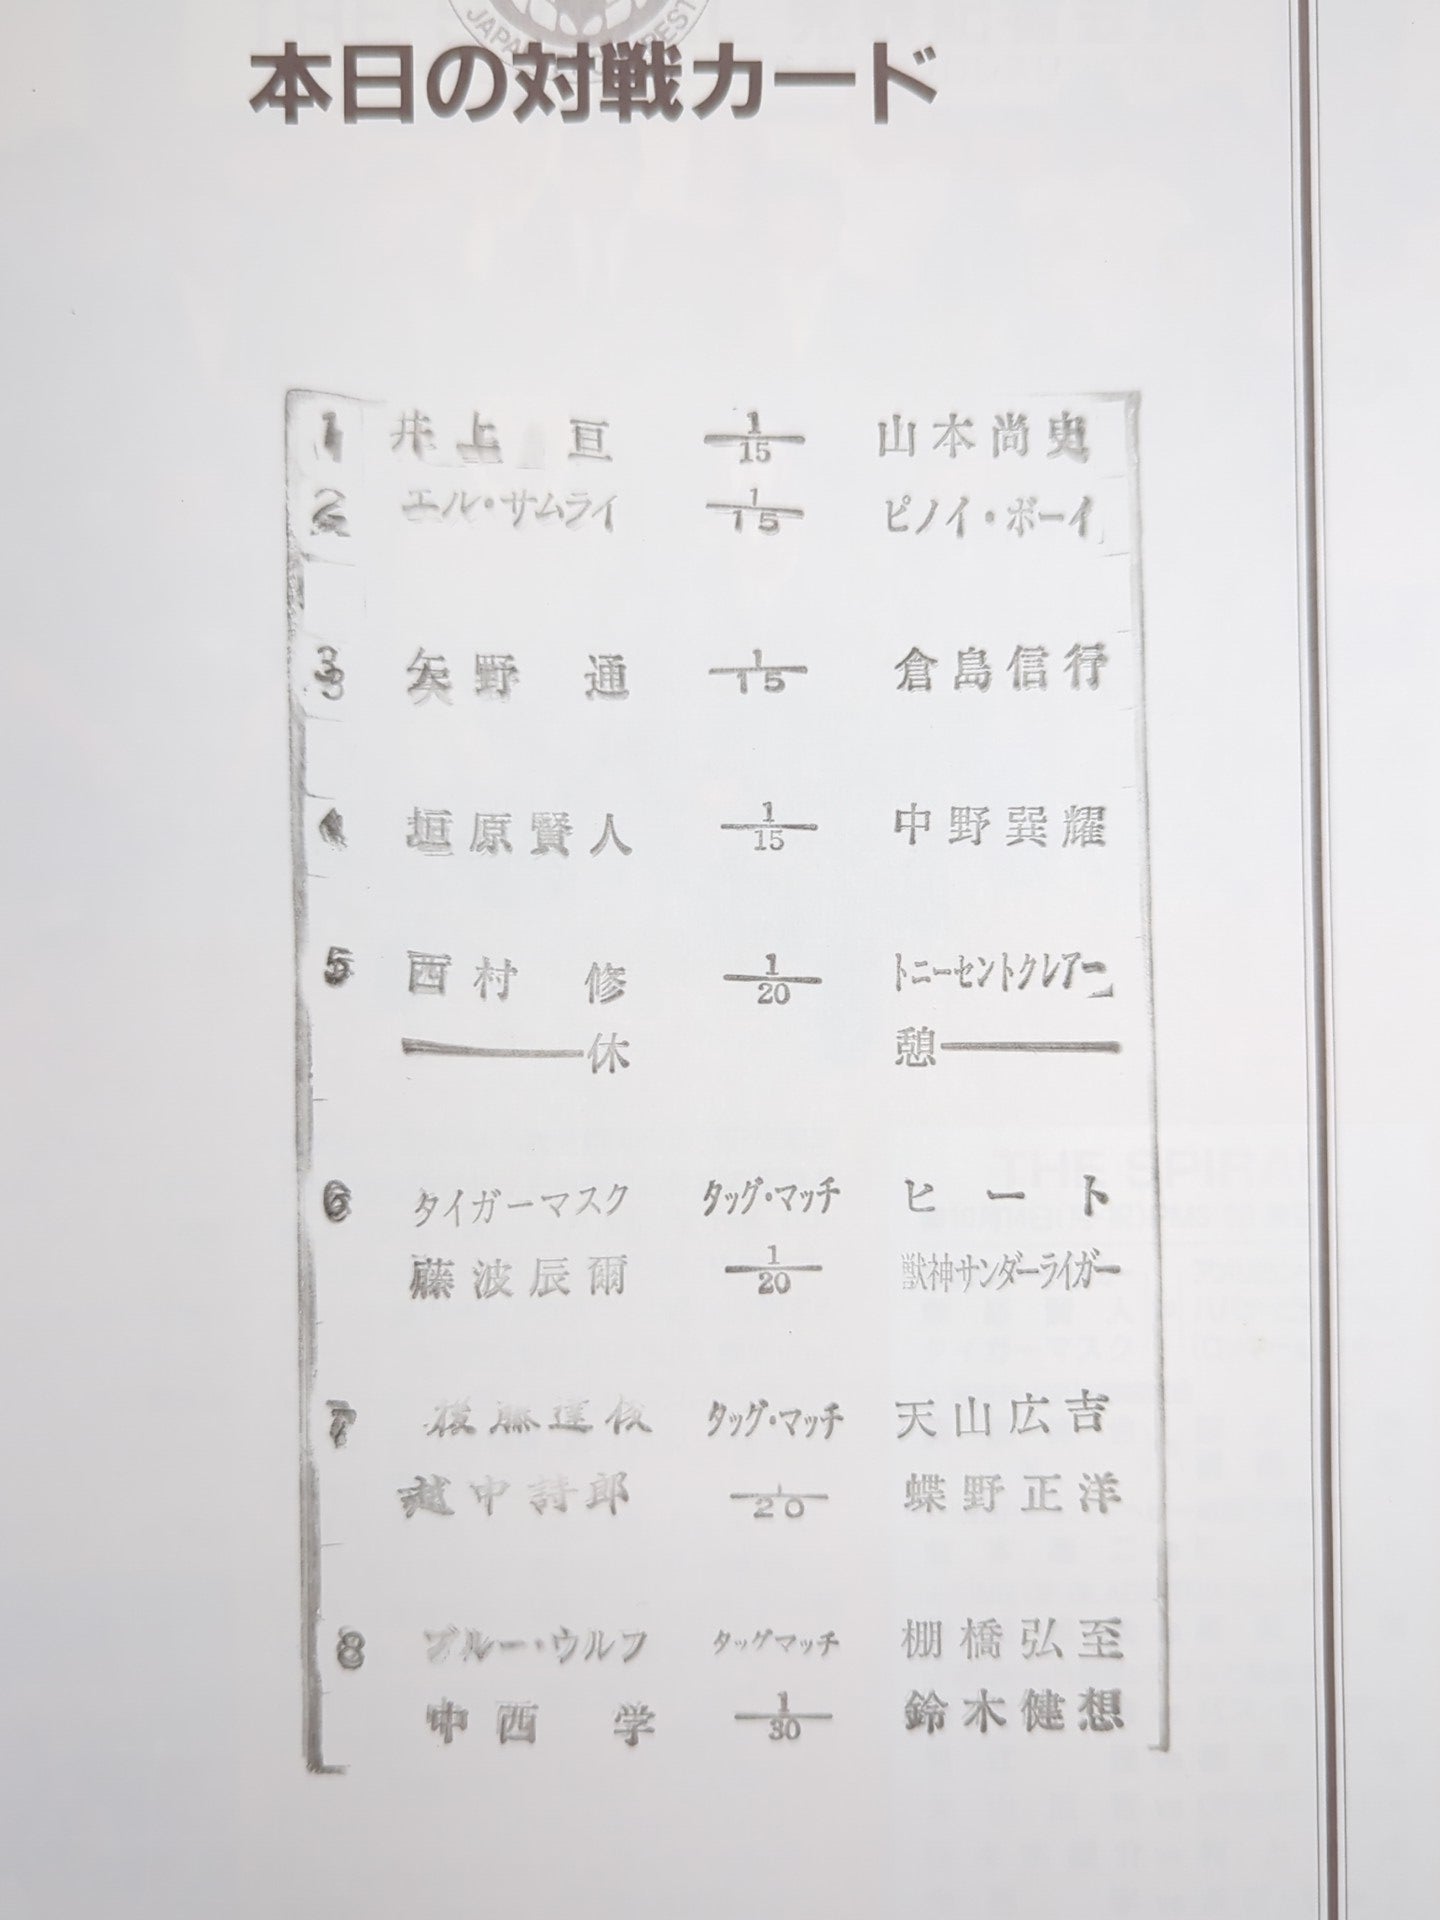 本日の対戦カード
1 井上 亘 1/15 山本尚史
2 エル・サムライ 1/15 ピノイ・ボーイ
3 矢野 通 1/15 倉島信行
4 垣原賢人 1/15 中野巽耀
5 西村 修 1/20 トニーセントクレアー
休 憩
6 タイガーマスク タッグ・マッチ ヒート
藤波辰爾 1/20 獣神サンダーライガー
7 後藤達俊 タッグ・マッチ 天山広吉
越中詩郎 1/20 蝶野正洋
8 ブルー・ウルフ タッグマッチ 棚橋弘至
中西 学 1/30 鈴木健想